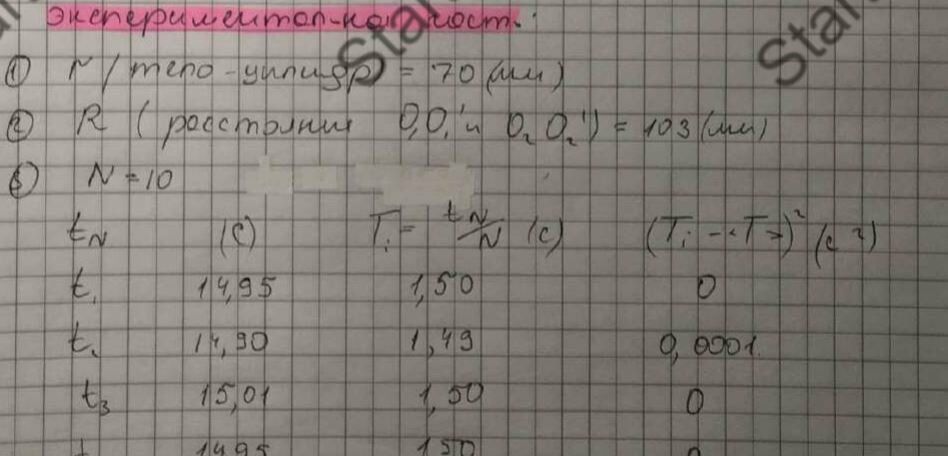 экспериментал-ная част:
① r (тело-цилиндр) = 70 (мм)
② R (расстояния O₁O₁' и O₂O₂') = 103 (мм)
③ N = 10
tN (с) Tᵢ = tN/N (с) (Tᵢ - <T>)² (с²)
t₁ 14,95 1,50 0
t₂ 14,90 1,49 0,0001
t₃ 15,01 1,50 0
t 14,95 1,50 0